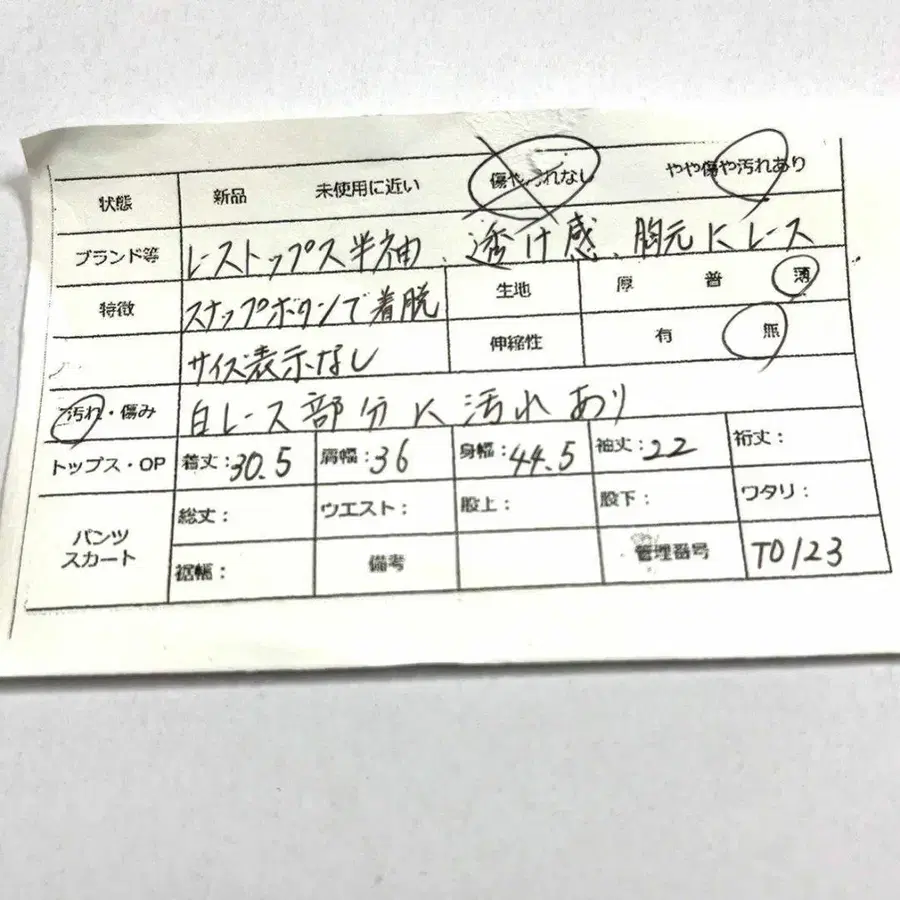 状態 新品 未使用に近い 傷や汚れなし やや傷や汚れあり
ブランド等 レーストップス半袖、透け感、胸元にレース
特徴 スナップボタンで着脱 生地 厚 普 薄
サイズ表示なし 伸縮性 有 無
汚れ・傷み 白レース部分に汚れあり
トップス・OP 着丈:30.5 肩幅:36 身幅:44.5 袖丈:22 裄丈:
パンツ スカート 総丈: ウエスト: 股上: 股下: ワタリ:
裾幅: 備考 管理番号 T0123